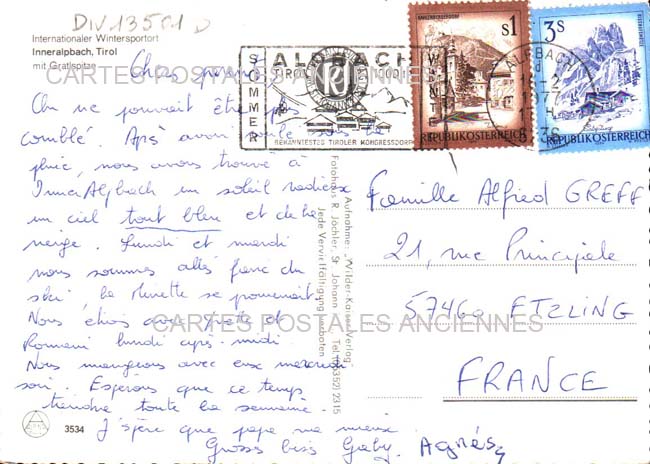 DIV13501
Internationaler Wintersportort
Inneralpbach, Tirol
mit Gratlspitze
CARTES POSTALES ANCIENNES
Chers
On ne pouvait être plus
comblé. Après avoir roulé sous la
pluie, nous avons trouvé à
InnerAlpbach un soleil radieux
un ciel tout bleu et de la
neige. Lundi et mardi
nous sommes allés faire du
ski, la Minette se promenait
Nous étions avec et
Romani lundi après-midi.
Nous mangeons avec eux mercredi
soir. Espérons que ce temps
tiendra toute la semaine.
J'espère que papa va mieux.
Gross biss Gaby. Agnès
3534
SOMMER
ALPBACH
TIROL 1000m
WINTER
BEKANNTESTES TIROLER KONGRESSDORF
s1
REPUBLIK ÖSTERREICH
3S
REPUBLIK ÖSTERREICH
ALPBACH
Aufnahme: „Wilder-Kaiser"-Verlag
Fotohaus R. Jöchler, St. Johann Tel. 05352/2315
Jede Vervielfältigung verboten
Famille Alfred GREFF
21, rue Principale
57460 ETZLING
CARTES POSTALES ANCIENNES
FRANCE